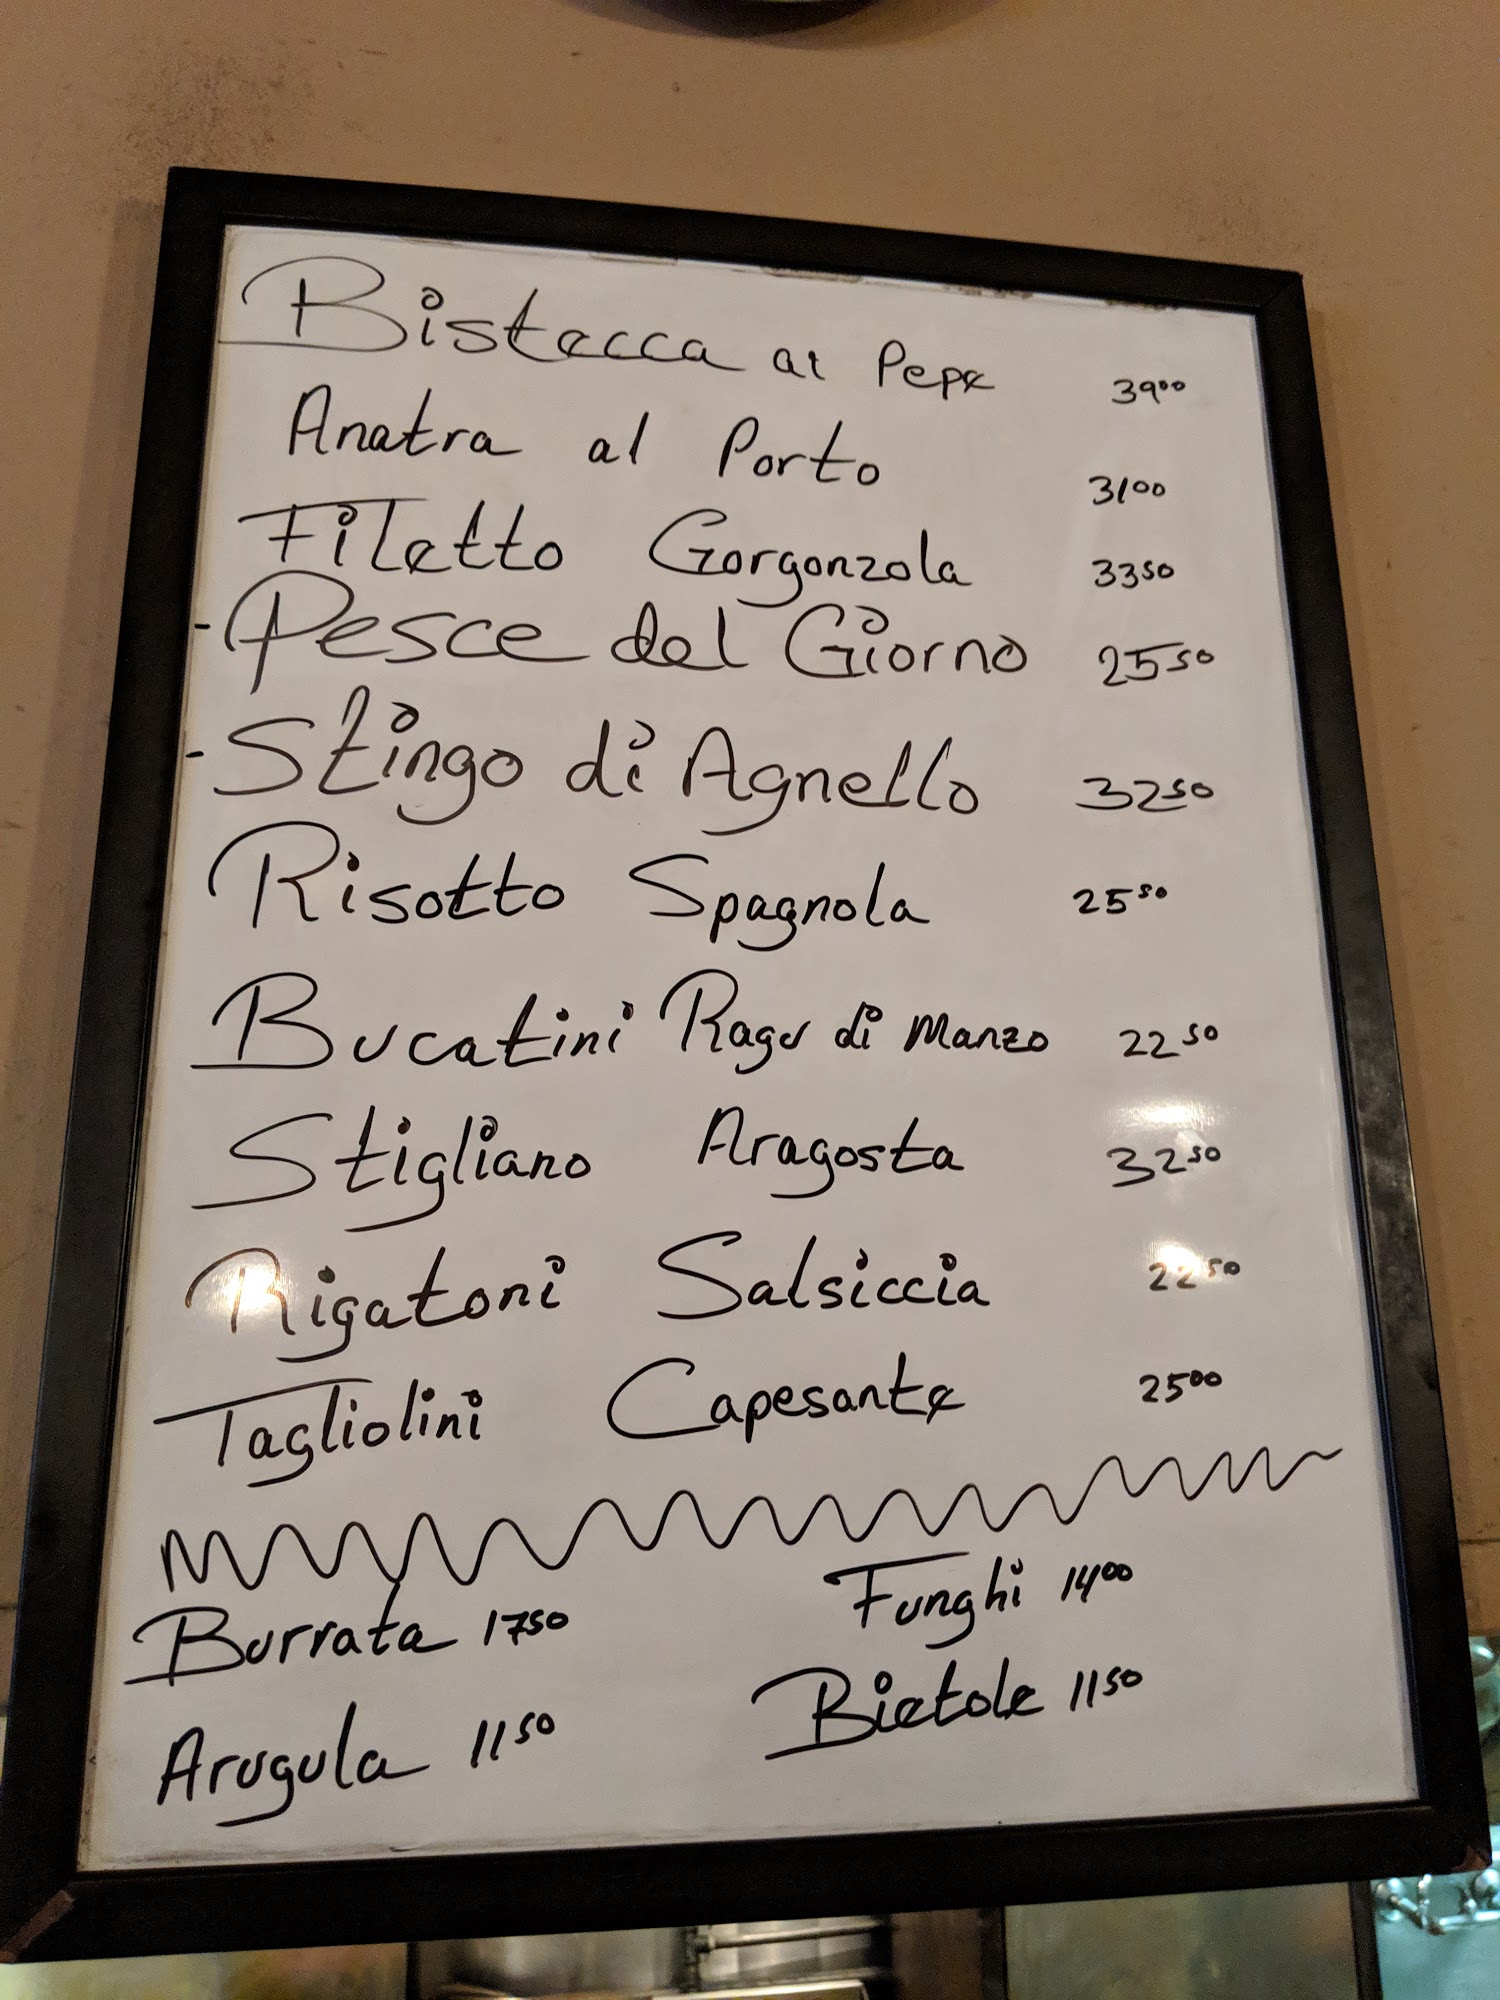 Bistecca al Pepe 39.00
Anatra al Porto 31.00
Filetto Gorgonzola 33.50
- Pesce del Giorno 25.50
- Stingo di Agnello 32.50
Risotto Spagnola 25.50
Bucatini Ragu di Manzo 22.50
Stigliano Aragosta 32.50
Rigatoni Salsiccia 22.50
Tagliolini Capesante 25.00
Burrata 17.50 Funghi 14.00
Arugula 11.50 Bietole 11.50